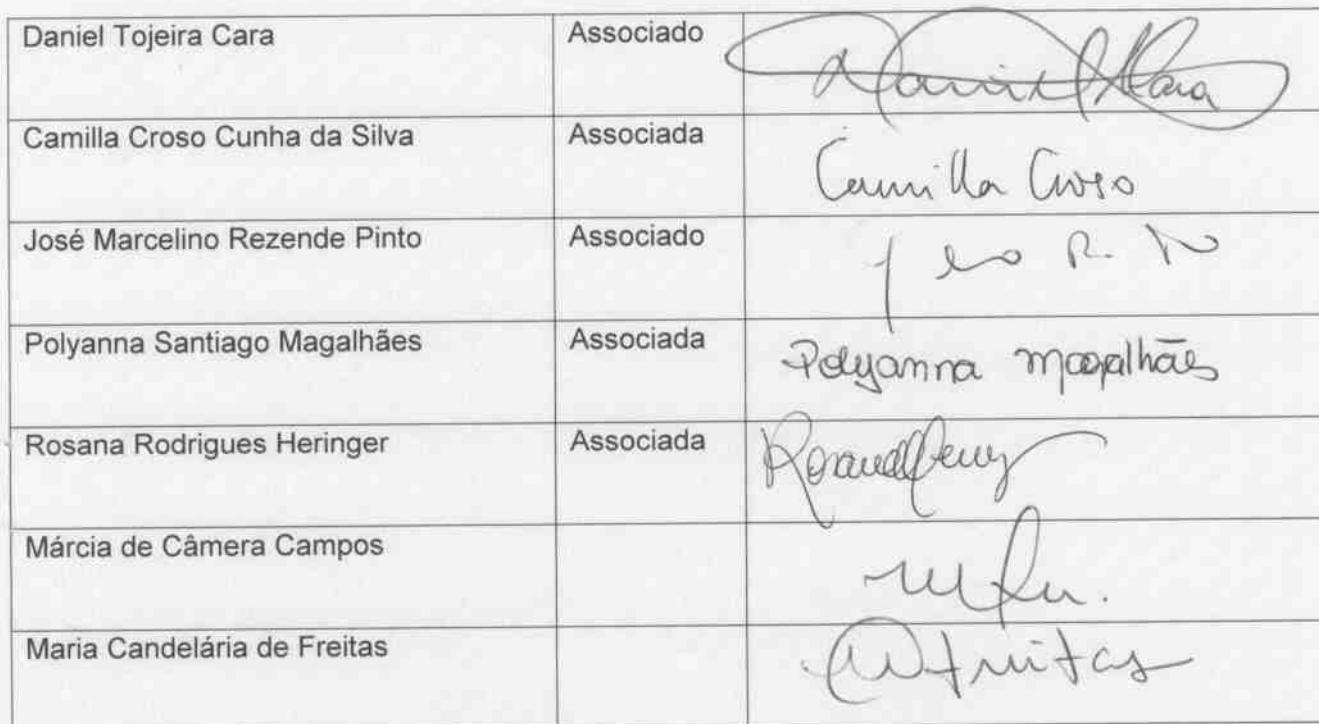 Daniel Tojeira Cara Associado Daniel Cara
Camilla Croso Cunha da Silva Associada Camilla Croso
José Marcelino Rezende Pinto Associado
Polyanna Santiago Magalhães Associada Polyanna Magalhães
Rosana Rodrigues Heringer Associada
Márcia de Câmera Campos
Maria Candelária de Freitas Freitas